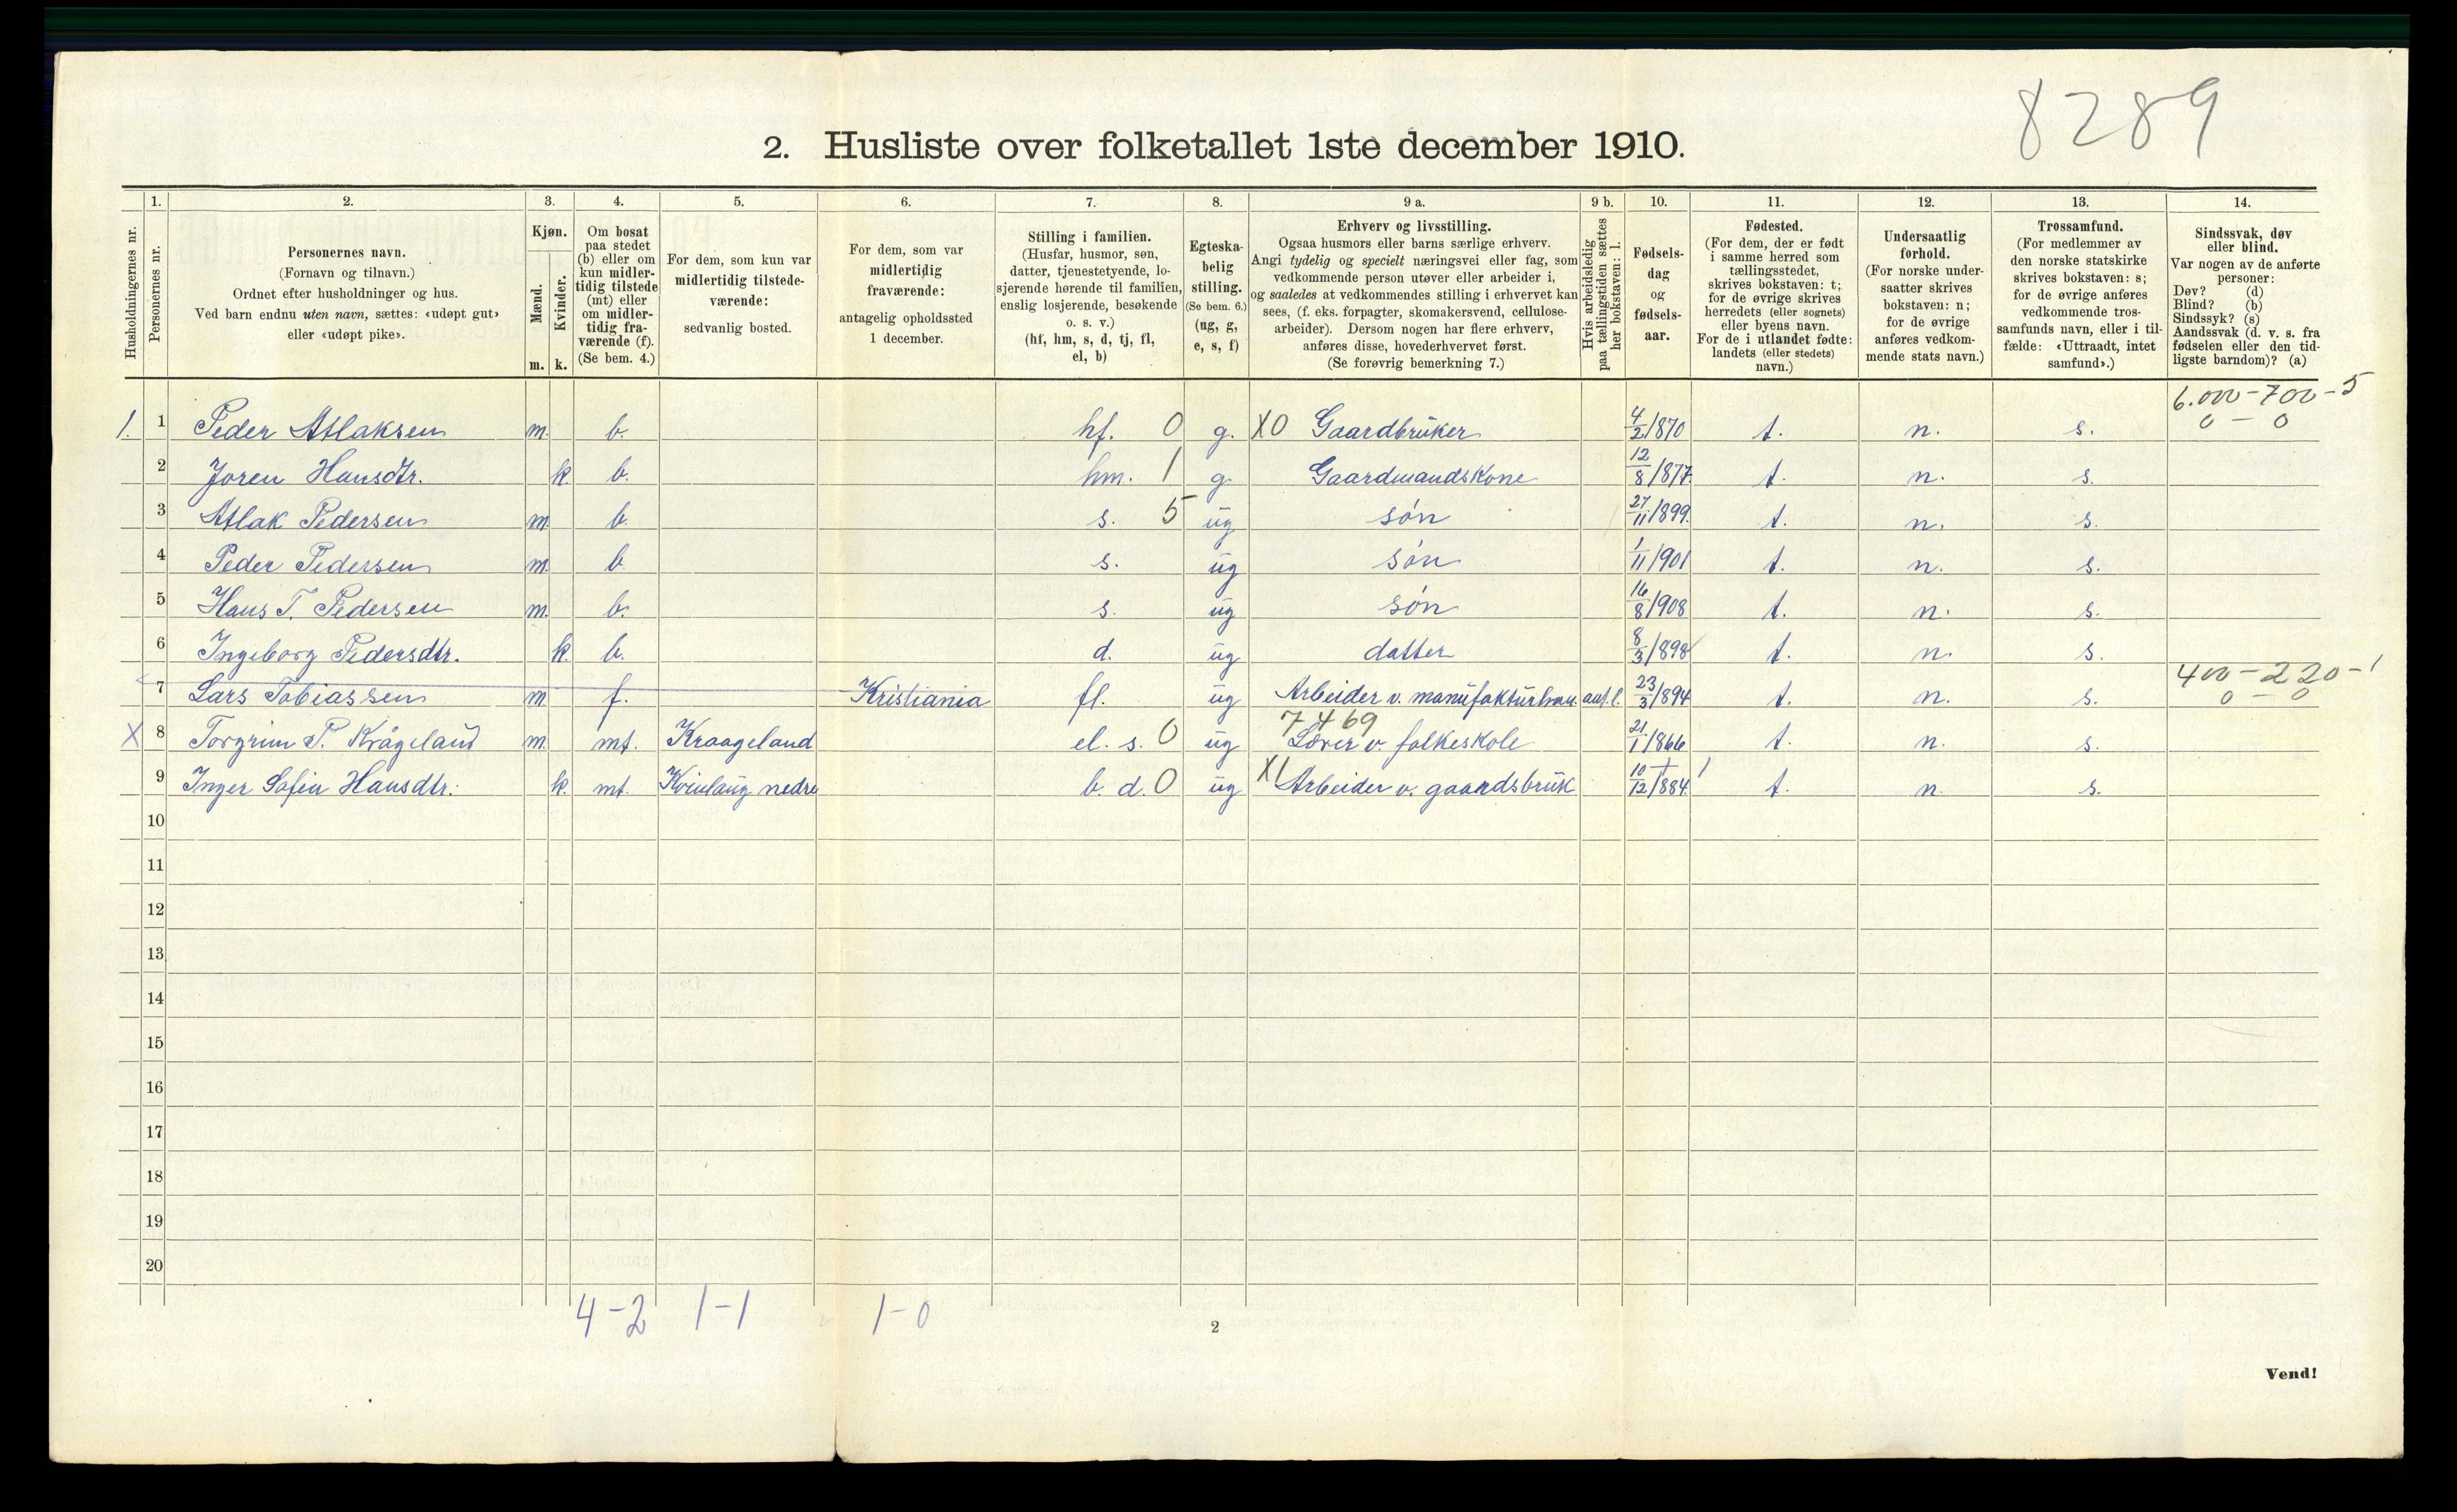 8289
2. Husliste over folketallet 1ste december 1910.
Husholdningernes nr.
1. Personernes nr.
2. Personernes navn. (Fornavn og tilnavn.) Ordnet efter husholdninger og hus. Ved barn endnu uten navn, sættes: «udøpt gut» eller «udøpt pike».
3. Kjøn. Mænd. m. Kvinder. k.
4. Om bosat paa stedet (b) eller om kun midlertidig tilstede (mt) eller om midlertidig fraværende (f). (Se bem. 4.)
5. For dem, som kun var midlertidig tilstedeværende: sedvanlig bosted.
6. For dem, som var midlertidig fraværende: antagelig opholdssted 1 december.
7. Stilling i familien. (Husfar, husmor, søn, datter, tjenestetyende, losjerende hørende til familien, enslig losjerende, besøkende o. s. v.) (hf, hm, s, d, tj, fl, el, b)
8. Egteskabelig stilling. (Se bem. 6.) (ug, g, e, s, f)
9 a. Erhverv og livsstilling. Ogsaa husmors eller barns særlige erhverv. Angi tydelig og specielt næringsvei eller fag, som vedkommende person utøver eller arbeider i, og saaledes at vedkommendes stilling i erhvervet kan sees, (f. eks. forpagter, skomakersvend, cellulosearbeider). Dersom nogen har flere erhverv, anføres disse, hovederhvervet først. (Se forøvrig bemerkning 7.)
9 b. Hvis arbeidsledig paa tællingstiden sættes her bokstaven: l.
10. Fødselsdag og fødselsaar.
11. Fødested. (For dem, der er født i samme herred som tællingsstedet, skrives bokstaven: t; for de øvrige skrives herredets (eller sognets) eller byens navn. For de i utlandet fødte: landets (eller stedets) navn.)
12. Undersaatlig forhold. (For norske undersaatter skrives bokstaven: n; for de øvrige anføres vedkommende stats navn.)
13. Trossamfund. (For medlemmer av den norske statskirke skrives bokstaven: s; for de øvrige anføres vedkommende trossamfunds navn, eller i tilfælde: «Uttraadt, intet samfund».)
14. Sindssvak, døv eller blind. Var nogen av de anførte personer: Døv? (d) Blind? (b) Sindssyk? (s) Aandssvak (d. v. s. fra fødselen eller den tidligste barndom)? (a)
6.000-700-5
0 - 0
1. 1 Peder Atlaksen m. b. hf. 0 g. X0 Gaardbruker 4/2/870 t. n. s.
2 Joren Hansdtr. k. b. hm. 1 g. Gaardmandskone 12/8/877. t. n. s.
3 Atlak Pedersen m. b. s. 5 ug søn 27/11/899. t. n. s.
4 Peder Pedersen m. b. s. ug søn 1/11/901 t. n. s.
5 Hans T. Pedersen m. b. s. ug søn 16/8/908 t. n. s.
6 Ingeborg Pedersdtr. k. b. d. ug datter 8/3/898 t. n. s.
400-220-1
0 - 0
7 Lars Tobiassen m. f. Kristiania fl. ug Arbeider v. l. 23/3/894 t. n. s.
7469
X 8 Torgrim P. Krågeland m. mt. Kraageland el. s. 0 ug Lærer v. folkeskole 21/1/866 t. n. s.
9 Inger Sofie Hansdtr. k. mt. Kvinlaug nedre b. d. 0 ug X1 Arbeider v. gaardsbruk 10/12/884. t. n. s.
10
11
12
13
14
15
16
17
18
19
20
4-2 1-1 1-0
2
Vend!